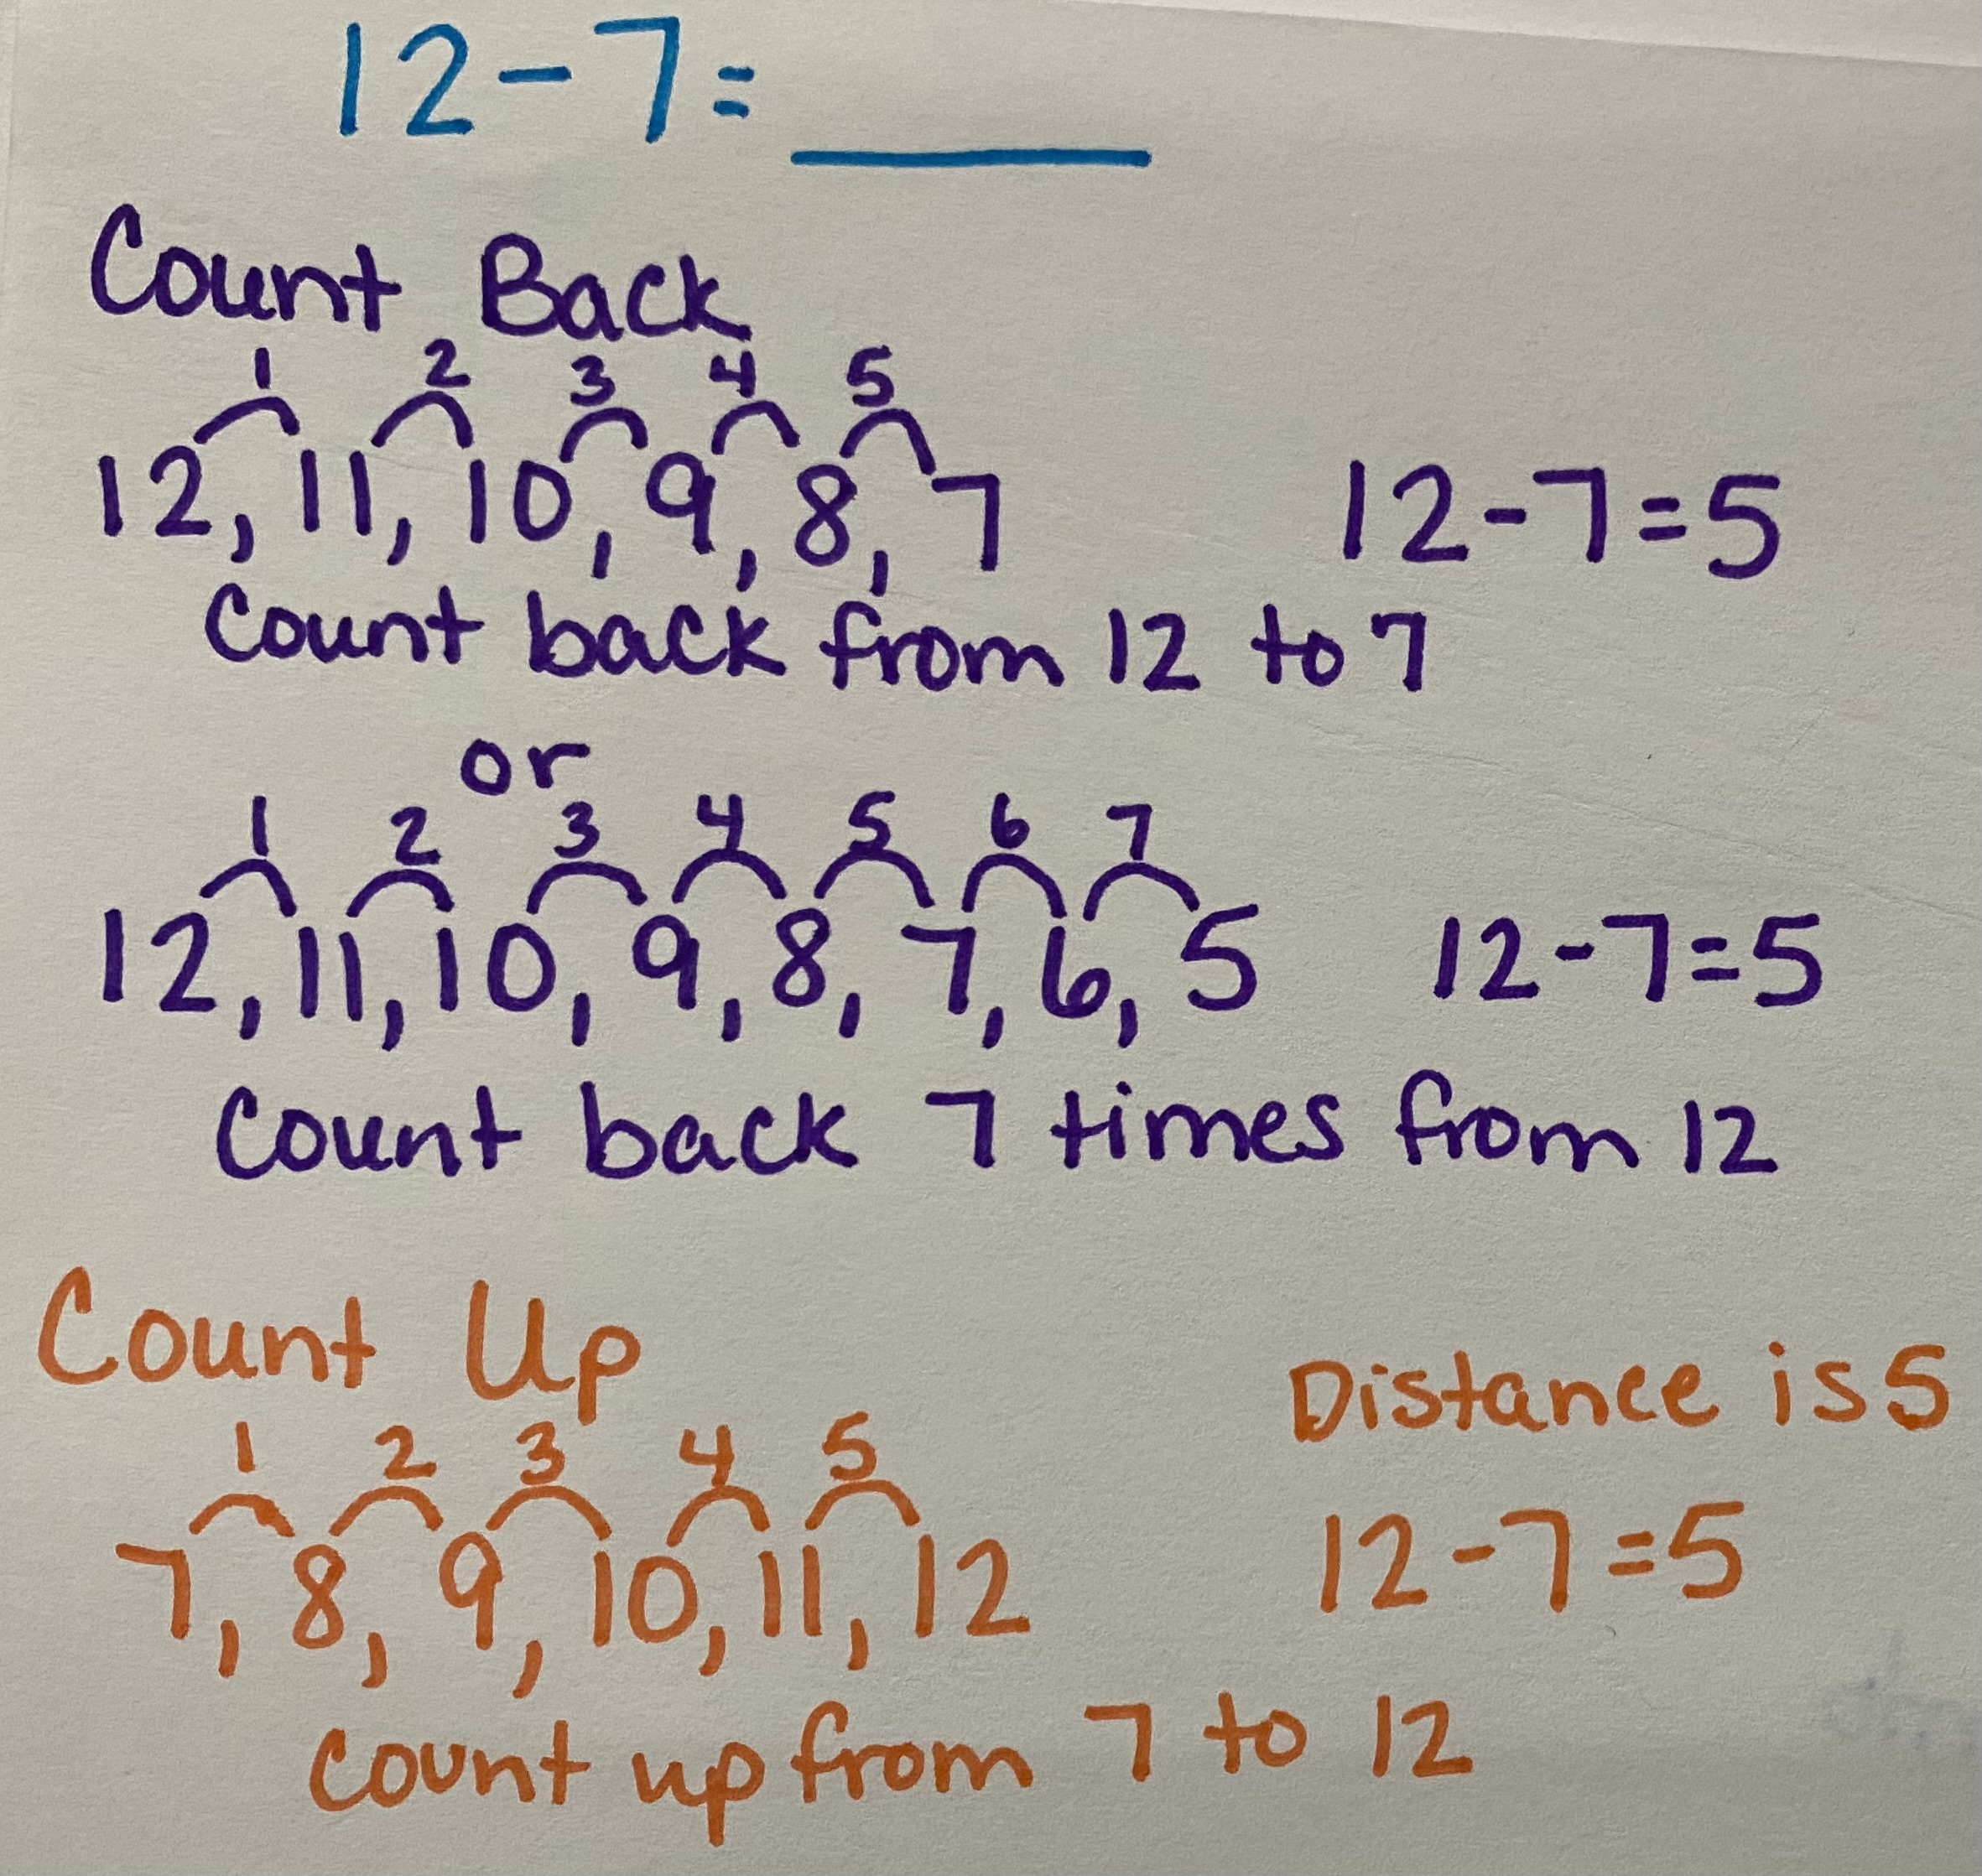 12-7= ____
Count Back
1 2 3 4 5
12, 11, 10, 9, 8, 7 12-7=5
Count back from 12 to 7
or
1 2 3 4 5 6 7
12, 11, 10, 9, 8, 7, 6, 5 12-7=5
Count back 7 times from 12
Count Up
Distance is 5
1 2 3 4 5
7, 8, 9, 10, 11, 12 12-7=5
Count up from 7 to 12